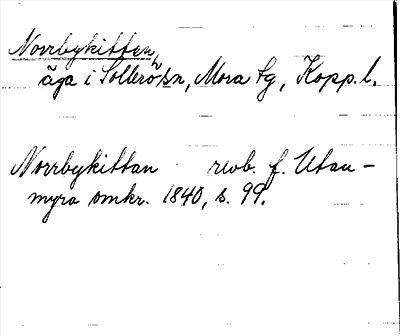 Norrbykitten,
äga i Sollerö sn, Mora tg, Kopp. l.
Norrbykittan rwb. f. Utan-
myra omkr. 1840, s. 99.